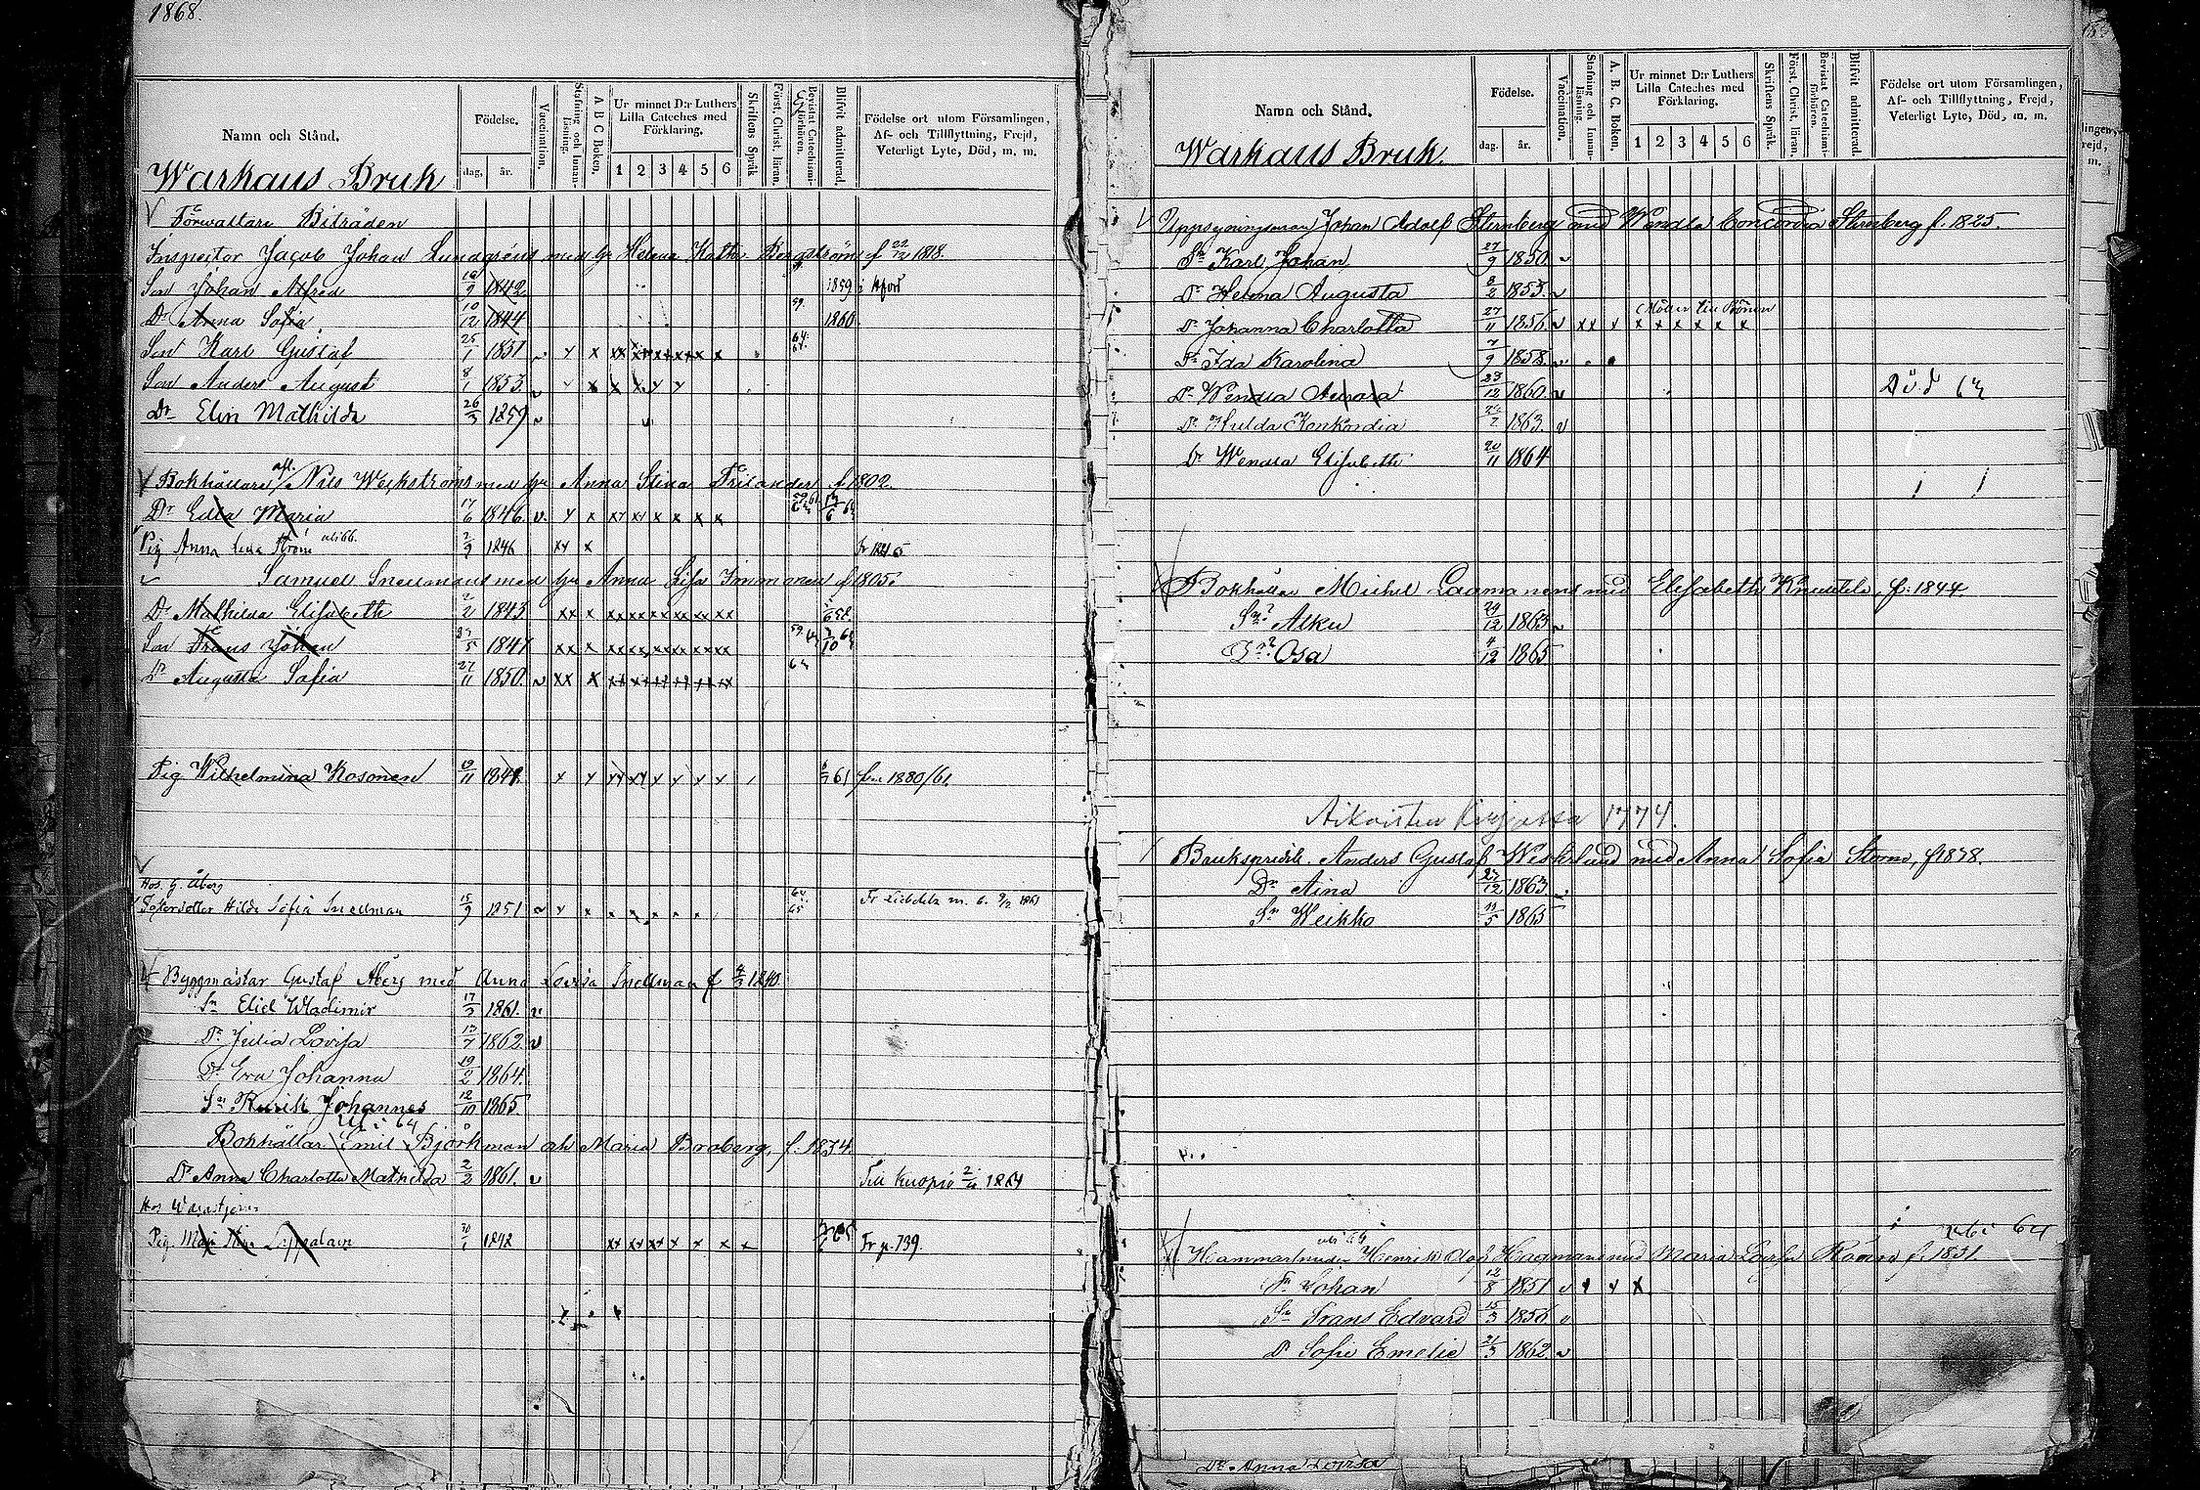 1868.
Namn och Stånd.
Födelse.
dag,
år.
Vaccination.
Stafning och Innanläsning.
A B C Boken,
Ur minnet D:r Luthers Lilla Cateches med Förklaring.
1 2 3 4 5 6
Skriftens Språk
Först. Christ. läran.
Bevistat Catechismiförhören.
Blifvit admitterad.
Födelse ort utom Församlingen, Af- och Tillflyttning, Frejd, Veterligt Lyte, Död, m. m.
Warkaus Bruk
Förwaltare Biträden
Inspector Jacob Johan Lundgréns med h: Helena Kath: Bergström f 22/12 1818.
Son Johan Alfred 19/9 1842 1859
Dr Anna Sofia 10/12 1844 59. 1860
Son Karl Gustaf 25/1 1851
Son Anders August 8/1 1853
Dr Elin Mathilda 26/3 1859
Bokhållare Nils Weckströms med h: Anna Stina Frilander f 1802.
Dr Edla Maria 17/6 1846
Pig Anna Lena Ström 2/9 1846
Samuel Snellmans med h: Anna Lisa Immonen f 1805.
Dr Mathilda Elisabeth 2/2 1843
Son Frans Johan 1847
Dr Augusta Sofia 27/11 1850
Pig. Wilhelmina Kosonen 19/11 1841 61 1880/61
Hos G. Åberg
Fosterdotter Hilda Sofia Snellman 15/9 1851
Byggmästar Gustaf Åberg med Anna Lovisa Snellman f 4/3 1840
Sn Eliel Wladimir 17/3 1861
Dr Julia Lovisa 13/7 1862
Dr Eva Johanna 19/2 1864
Sn Rurik Johannes 12/10 1865
Bokhållar Emil Björkman Maria Broberg, f. 1834
Dr Anna Charlotta Mathilda 2/2 1861. Till Kuopio 1864
Pig. Maja Stina Leppälain 30/1 1842 Fr p. 739.
Namn och Stånd.
Födelse.
dag.
år.
Vaccination.
Stafning och Innanläsning.
A. B. C. Boken.
Ur minnet D:r Luthers Lilla Cateches med Förklaring.
1 2 3 4 5 6
Skriftens Språk.
Först. Christ. läran.
Bevistat Catechismiförhören.
Blifvit admitterad.
Födelse ort utom Församlingen, Af- och Tillflyttning, Frejd, Veterligt Lyte, Död, m. m.
Warkaus Bruk.
Uppsyningsman Johan Adolf Sternberg med Wendla Concordia Sternberg f. 1825.
Sn Karl Johan 27/9 1850
Dr Helena Augusta 1853
Dr Johanna Charlotta 27/11 1856
Dr Ida Karolina 7/9 1858
Dr Wendla Aurora 23/12 1860 Död
Dr Hulda Konkordia 1863
Dr Wendla Elisabeth 20/11 1864
Bokhållar Michel Lagmanens med Elisabeth f. 1844
Sn Alku 29/12 1863
Osa 4/12 1865
Aikaisten Kirjassa 1774.
Brukspredik. Anders Gustaf Westerlund med Anna Sofia Storm, f 1838.
Dr Aina 27/12 1863
Sn Weikko 1865
64
Hammarsmeden Henrik Olof Hagmans med Maria Lovisa f. 1831
Sn Johan 12/8 1851
Sn Frans Edvard 15/3 1856
D Sofie Emelie 21/3 1862
Dr Anna Lovisa